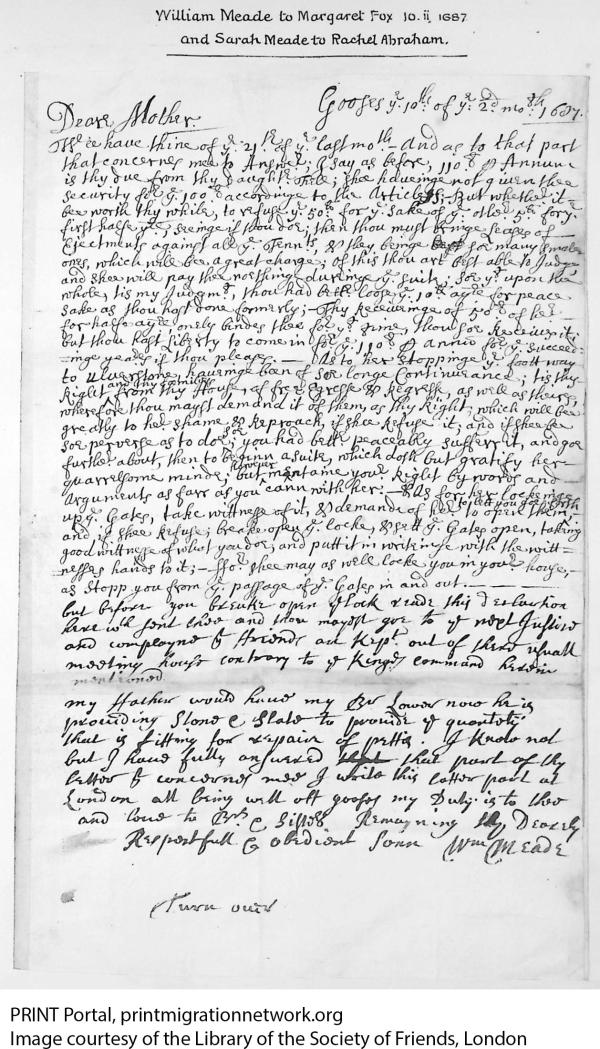 William Meade to Margaret Fox 10. ii. 1687
and Sarah Meade to Rachel Abraham.
Gooses yͤ 10th of yͤ 2d moth 1687.
Deare Mother
Wee have thine of yͤ 21th of yͤ last moth – And as to that part
that concernes mee to Answer; I say as before, 110£ ℘ Annum
is thy due from thy Daughtr Fell; shee haveinge not given thee
security for yͤ 100£ accordinge to the Articles; But whether it
bee worth thy while, to refuse yͤ 50£ for yͤ sake of yͤ other 5£ for yͤ
first halfe yeare, seeinge if thou doe; then thou must bringe Leases of
Ejectments against all yͤ Tennts, & they beinge soe many smale
ones, which will bee a great charge; of this thou art best able to Judge
and shee will pay thee nothinge duringe yͤ suit; Soe yͭ upon the
whole, tis my Judgmt, thou had bettr loose yͤ 10£ for peace
sake as thou hast done formerly; – Thy Receiveinge of 50£ of her
for halfe a yeare onely bindes thee for yͭ time, thou soe Receives it;
but thou hast liberty to come in for yͤ 110£ ℘ Annu for yͤ succeed-
-inge yeares if thou please. – As to her stoppinge yͤ foott way
to Ulverstone, haveinge been of soe longe Continuance; tis thy
and thy familys
Right from thy House, of free Egresse & Regresse, as well as theirs,
wherefore thou mayst demand it of them, as thy Right; which will bee
greatly to her shame, & Reproach, if shee Refuse it; and if shee bee
soe perverse as to doe soe; you had bettr peaceably suffer it, and goe
further about, then to beginn a suite, which doth but gratify her
quarrelsome minde; but maintaine your Right by words and
however
Arguments as farr as you cann with her: – As for her lockeinge
up yͤ Gates, take wittnesse of it, & demande of her to open them,
and if shee Refuse; breake open yͤ locke, & sett yͤ Gates open, taking
good wittnesse of what you doe, and putt it in writeinge with the witt-
nesses hands to it; – For shee may as well locke you in your house,
as stopp you from yͤ passage of yͤ Gates in and out.
but before you breake open yͤ lock reade this Declaration
here with sent thee and thou mayest goe to yͤ next Justice
and complayne yͭ Friends are kept out of there usuall
meeting house contrary to yͤ Kings command herein
mentioned
my Father would have my Br Lower now he is
provideing Stone & Slate to provide yͤ quantety
that is fitting for repaire of pettis. I know not
but I have fully answered that part of thy
letter yͭ concernes mee I write this latter part at
London all being well att gooses my Duty is to thee
and love to Brs & Sisters Remayning thy Dearely
Respectfull & obedient Sonn Wm Meade
Turn over
PRINT Portal, printmigrationnetwork.org
Image courtesy of the Library of the Society of Friends, London